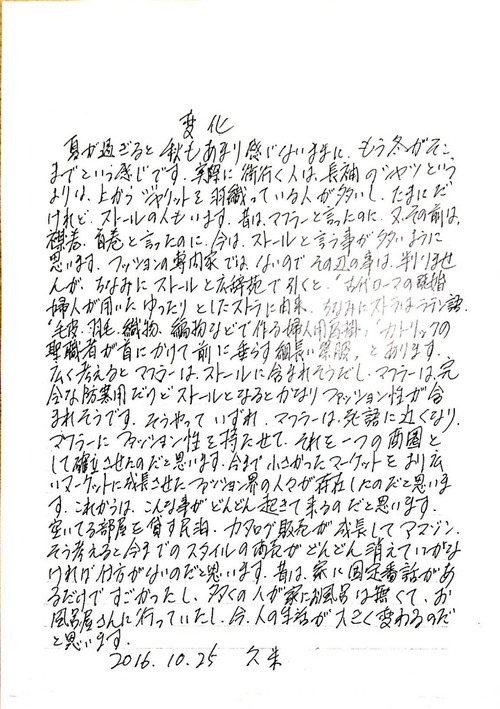 変化
夏が過ぎると秋もあまり感じないままに、もう冬がそこ
までという感じです。実際に街行く人は、長袖のシャツという
よりは、上からジャケットを羽織っている人が多いし、たまにだ
けれど、ストールの人もいます。昔は、マフラーと言ったのに、又、その前は、
襟巻、首巻と言ったのに、今は、ストールと言う事が多いように
思います。ファッションの専門家では、ないのでその辺の事は、判りませ
んが、ちなみにストールと広辞苑で引くと、「古代ローマの既婚
婦人が用いたゆったりとしたストラに由来、ちなみにストラはラテン語
「毛皮、羽毛、織物、編物などで作る婦人用肩掛」「カトリックの
聖職者が首にかけて前に垂らす細長い祭服」とあります。
広く考えるとマフラーは、ストールに含まれそうだし、マフラーは、完
全な防寒用だけどストールとなるとかなりファッション性が含
まれそうです。そうやっていずれ、マフラーは、死語に近くなり、
マフラーにファッション性を持たせて、それを一つの商圏と
して確立させたのだと思います。今まで小さかったマーケットをより広
いマーケットに成長させたファッション界の人々が存在したのだと思いま
す。これからは、こんな事がどんどん起きて来るのだと思います。
空いてる部屋を貸す民泊、カタログ販売が成長してアマゾン、
そう考えると今までのスタイルの商売がどんどん消えていかな
ければ仕方がないのだと思います。昔は、家に固定電話があ
るだけですごかったし、多くの人が家にお風呂は無くて、お
風呂屋さんに行っていたし、今、人の生活が大きく変わるのだ
と思います。
2016.10.25 久朱